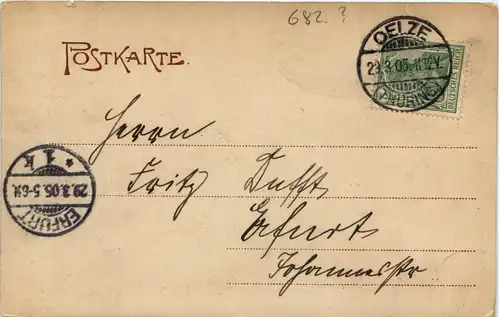 682. ?
POSTKARTE.
OELZE
29.3.05.11-12V.
(THÜRING)
DEUTSCHES REICH
Herrn
Fritz Dufft
Erfurt
Johannesstr
* 1 k
29.3.05.5-6N.
ERFURT